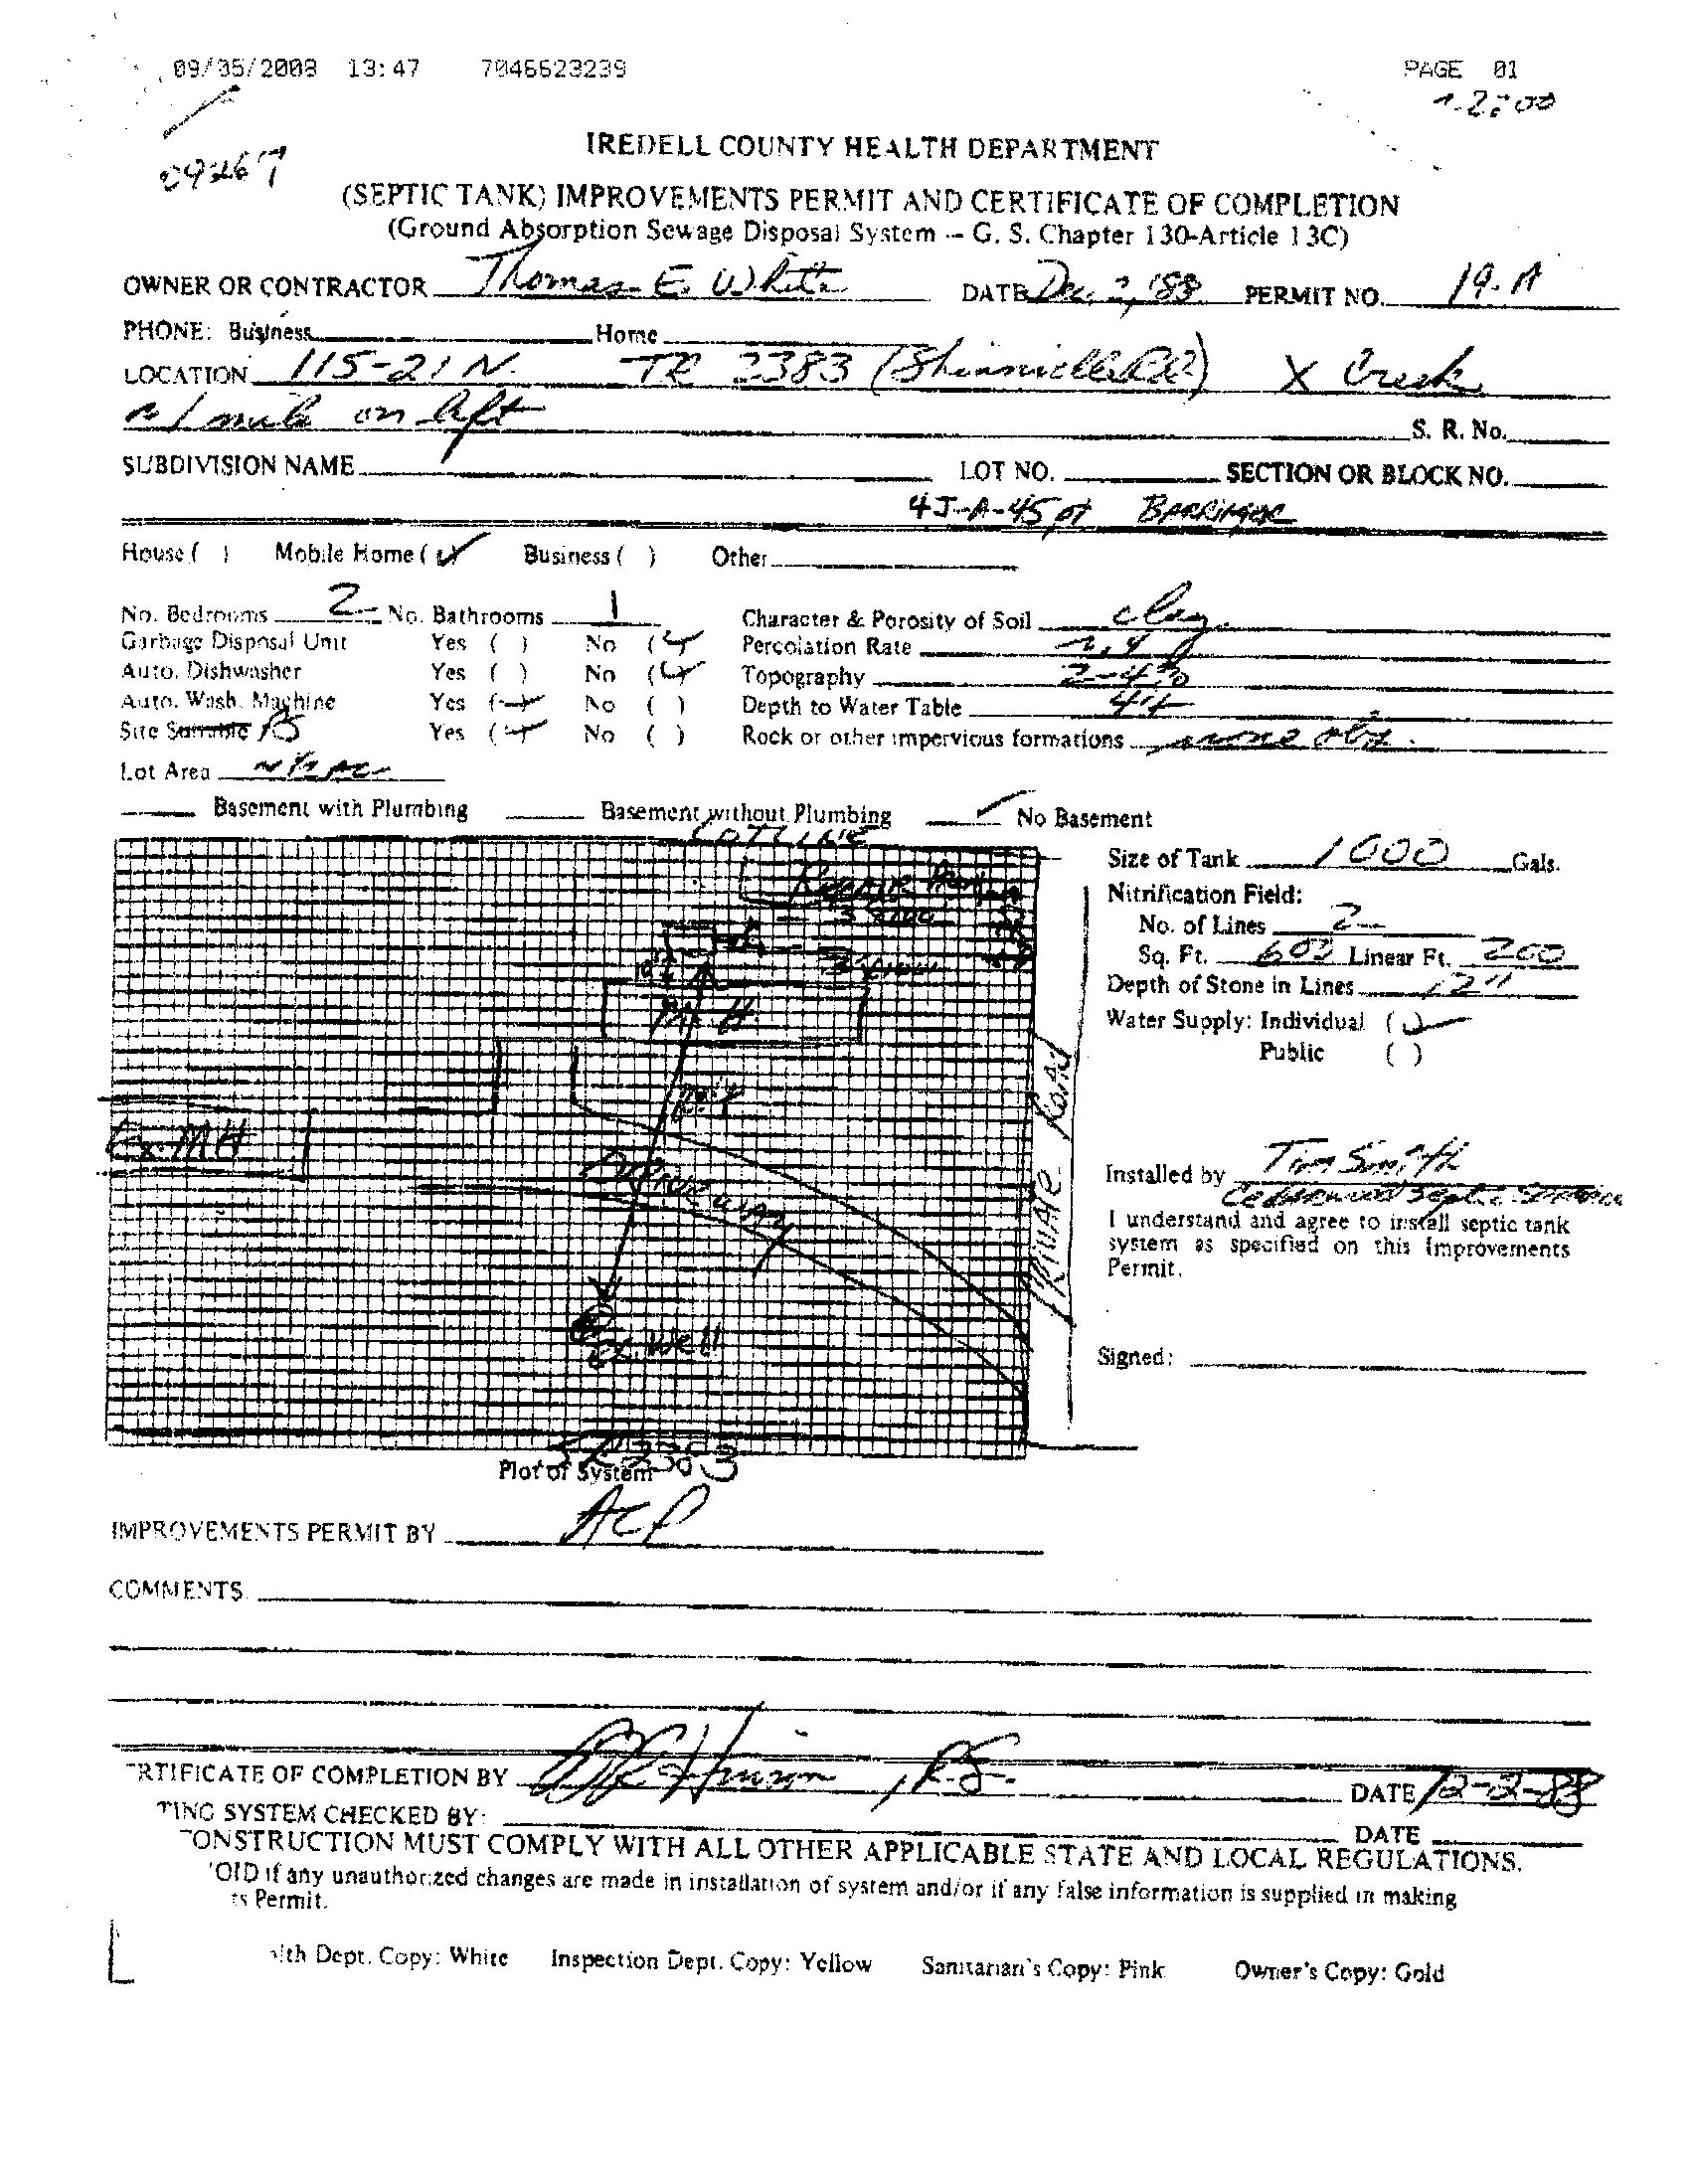 09/05/2008 13:47 7046623239 PAGE 01
IREDELL COUNTY HEALTH DEPARTMENT
(SEPTIC TANK) IMPROVEMENTS PERMIT AND CERTIFICATE OF COMPLETION
(Ground Absorption Sewage Disposal System -- G. S. Chapter 130-Article 13C)
OWNER OR CONTRACTOR Thomas E. White DATE Dec. 2, '88 PERMIT NO. 19-A
PHONE: Business Home
LOCATION 115-21 N. TR 2383 (Shinnville Rd) X Creek
~1 mile on left S. R. No.
SUBDIVISION NAME LOT NO. SECTION OR BLOCK NO.
4J-A-45 pt BARRINGER
House ( ) Mobile Home (✓) Business ( ) Other
No. Bedrooms 2 No. Bathrooms 1 Character & Porosity of Soil clay
Garbage Disposal Unit Yes ( ) No (✓) Percolation Rate
Auto. Dishwasher Yes ( ) No (✓) Topography 2-4%
Auto. Wash. Machine Yes (✓) No ( ) Depth to Water Table 4'+
Site Suitable PS Yes (✓) No ( ) Rock or other impervious formations none obs.
Lot Area ~ 1/2 AC
Basement with Plumbing Basement without Plumbing ✓ No Basement
LOT LINE
Size of Tank 1000 Gals.
Repair Area
Nitrification Field:
No. of Lines 2
Sq. Ft. 600 Linear Ft. 200
Depth of Stone in Lines 12"
M H
Water Supply: Individual (✓)
Public ( )
PRIVATE ROAD
Ex. MH
Driveway
Installed by Tim Smith
I understand and agree to install septic tank
system as specified on this Improvements
Permit.
Ex. Well
Signed:
SR 2383
Plot of System
IMPROVEMENTS PERMIT BY ACP
COMMENTS
RTIFICATE OF COMPLETION BY Hinson, R.S. DATE 12-2-88
TING SYSTEM CHECKED BY: DATE
ONSTRUCTION MUST COMPLY WITH ALL OTHER APPLICABLE STATE AND LOCAL REGULATIONS.
OID if any unauthorized changes are made in installation of system and/or if any false information is supplied in making
ts Permit.
lth Dept. Copy: White Inspection Dept. Copy: Yellow Sanitarian's Copy: Pink Owner's Copy: Gold